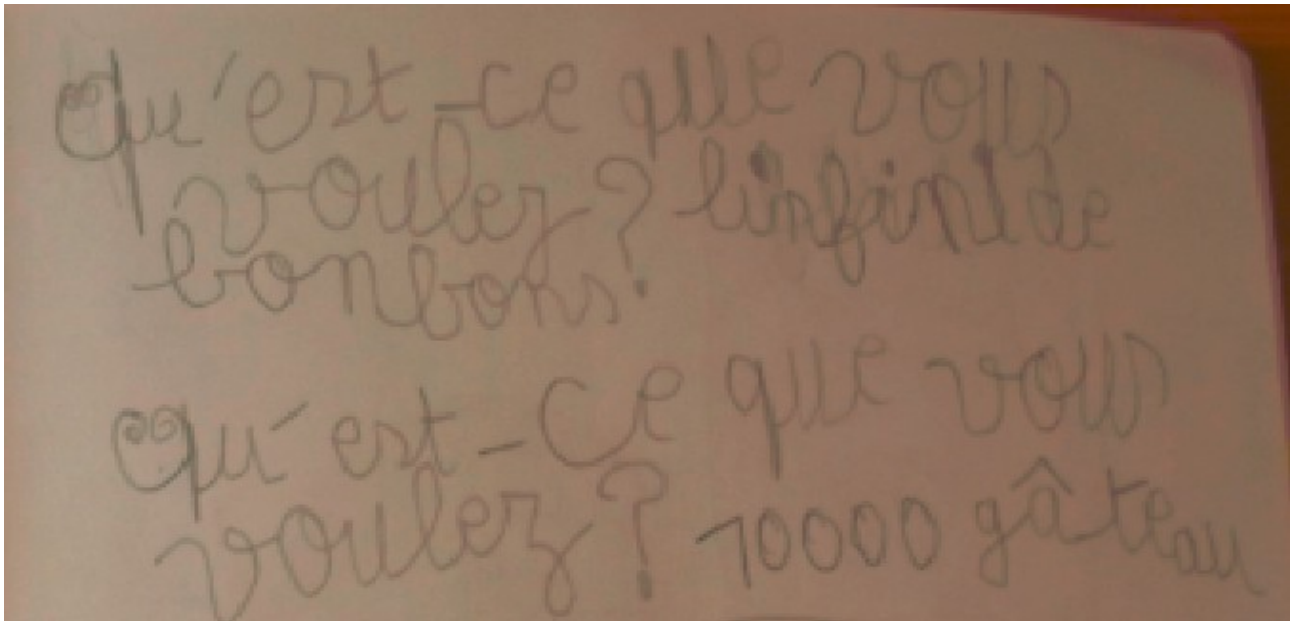 Qu'est-ce que vous
voulez? l'infini de
bonbons.
Qu'est-Ce que vous
voulez? 10000 gâteau